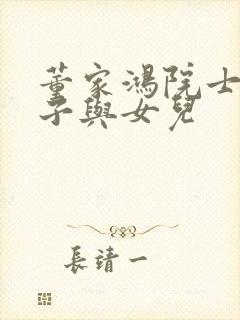 董家鴻院士
子與女兒
長靖一